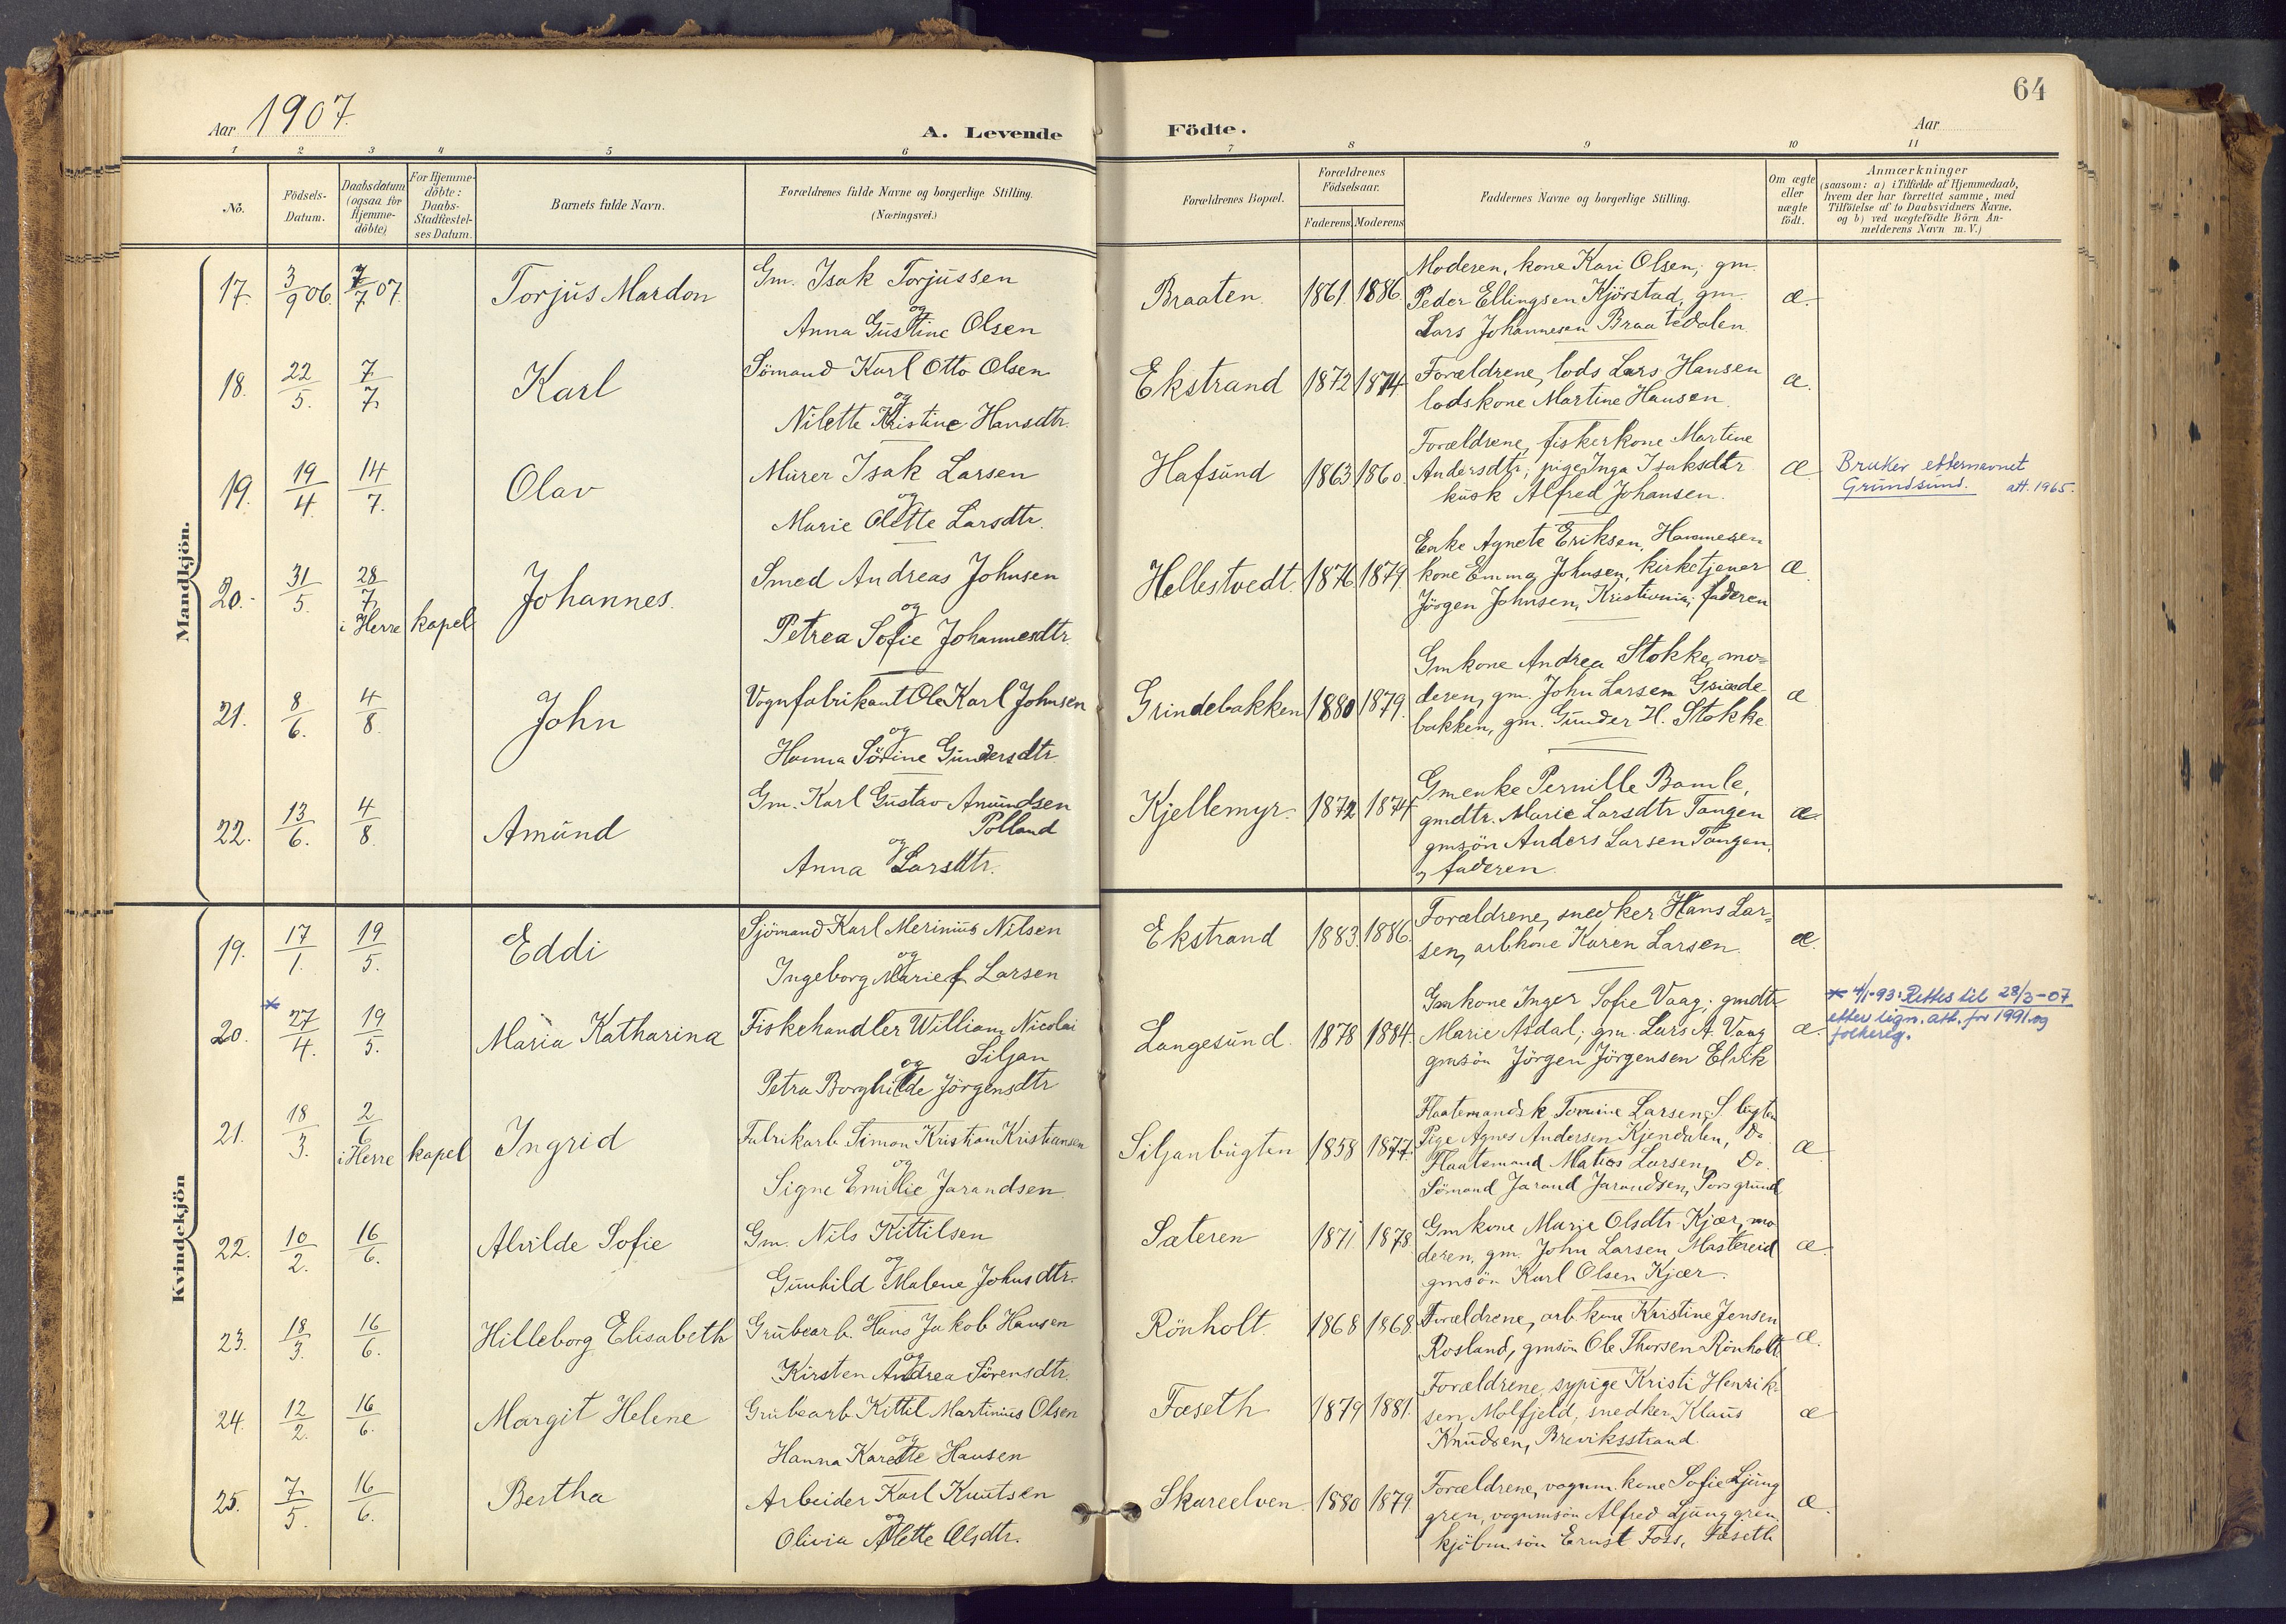 64
Aar 1907.
A. Levende Födte.
Aar
1 2 3 4 5 6 7 8 9 10 11
No.
Födsels-Datum.
Daabsdatum (ogsaa for Hjemme-döbte)
For Hjemme-döbte: Daabs-Stadfæstel-ses Datum.
Barnets fulde Navn.
Forældrenes fulde Navne og borgerlige Stilling.
(Næringsvei.)
Forældrenes Bopæl.
Forældrenes Födselsaar.
Faderens Moderens
Faddernes Navne og borgerlige Stilling.
Om ægte eller uægte födt.
Anmærkninger
(saasom: a) i Tilfælde af Hjemmedaab,
hvem der har forrettet samme, med
Tilföielse af to Daabsvidners Navne,
og b) ved uægtefödte Börn An-
melderens Navn m. V.)
Mandkjön.
17. 3/9 06. 7/7 07. Torjus Mardon
Gm. Isak Torjussen
og
Anna Gustine Olsen
Braaten. 1861. 1886.
Moderen, kone Kari Olsen, gm.
Peder Ellingsen Kjörstad, gm.
Lars Johannesen Braatedalen.
æ.
18. 22/5. 7/7. Karl
Sömand Karl Otto Olsen
og
Nilette Kristine Hansdtr.
Ekstrand 1872 1874.
Forældrene, lods Lars Hansen
lodskone Martine Hansen.
æ.
19. 19/4. 14/7. Olav
Murer Isak Larsen
og
Marie Olette Larsdtr.
Hafsund 1863 1860.
Forældrene, fiskerkone Martine
Andersdtr, pige Inga Isaksdtr
kusk Alfred Johansen.
æ
Bruker etternavnet
Grundsund. att. 1965.
20. 31/5. 28/7. i Herre kapel Johannes.
Smed Andreas Johnsen
og
Petrea Sofie Johannesdtr.
Hellestvedt. 1876. 1879.
Enke Agnete Eriksen, Hammesen
kone Emma Johnsen, kirketjener
Jörgen Johnsen, Kristiania, faderen
æ.
21. 8/6. 4/8. John
Vognfabrikant Ole Karl Johnsen
og
Hanna Sörine Gundersdtr.
Grindebakken 1880 1879.
Gmkone Andrea Stokke, mo-
deren, gm. John Larsen Grinde
bakken, gm. Gunder H. Stokke
æ
22. 13/6. 4/8. Amund
Gm. Karl Gustav Amundsen
Polland
og
Anna Larsdtr.
Kjellemyr. 1872 1874
Gmenke Pernille Bamle,
gmdtr. Marie Larsdtr Tangen
gmsön Anders Larsen Tangen,
og faderen.
æ
Kvindekjön
19. 17/1. 19/5. Eddi
Sjömand Karl Merinius Nilsen
og
Ingeborg Marie f Larsen
Ekstrand 1883. 1886.
Forældrene, snedker Hans Lar-
sen, arbkone Karen Larsen.
æ.
20. * 27/4. 19/5. Maria Katharina
Fiskehandler William Nicolai
Siljan
og
Petra Borghilde Jörgensdtr
Langesund. 1878 1884.
Gmkone Inger Sofie Vaag, gmdtr
Marie Asdal, gm. Lars A. Vaag
gmsön Jörgen Jörgensen Elvik
æ.
* 4/1-93: Rettes til 28/3-07
etter lign. att. for 1991 og
folkereg.
21. 18/3. 2/6 i Herre kapel Ingrid
Fabrikarb. Simon Kristian Kristiansen
og
Signe Emilie Jarandsen
Siljanbugten 1858 1877.
Flaatemandsk Tomine Larsen, S. bugten
Pige Agnes Andersen Kjendalen, Do
Flaatemand Matios Larsen, Do.
Sömand Jarand Jarandsen, Porsgrund
æ
22. 10/2. 16/6. Alvilde Sofie
Gm. Nils Kittilsen
og
Gunhild Malene Johnsdtr.
Sæteren 1871 1878.
Gmkone Marie Olsdtr. Kjær, mo
deren, gm. John Larsen Mastereid
gmsön Karl Olsen Kjær.
æ
23. 18/3. 16/6. Hilleborg Elisabeth
Grubearb. Hans Jakob Hansen
og
Kirsten Andrea Sörensdtr.
Rönholt. 1868 1868.
Forældrene, arb.kone Kristine Jensen
Rosland, gmsön Ole Thorsen Rönholt
æ.
24. 12/2. 16/6. Margit Helene
Grubearb. Kittil Martinius Olsen
og
Hanna Karette Hansen
Fæseth 1879 1881.
Forældrene, sypige Kristi Henrik-
sen Molfjeld, snedker Klaus
Knudsen, Breviksstrand
æ
25. 7/5. 16/6. Bertha
Arbeider Karl Knutsen
og
Olivia Alette Olsdtr.
Skareelven 1880 1879
Forældrene, vognm. kone Sofie Ljung
gren, vognmsön Alfred Ljunggren,
kjöbm.sön Ernst Foss, Fæseth
æ.